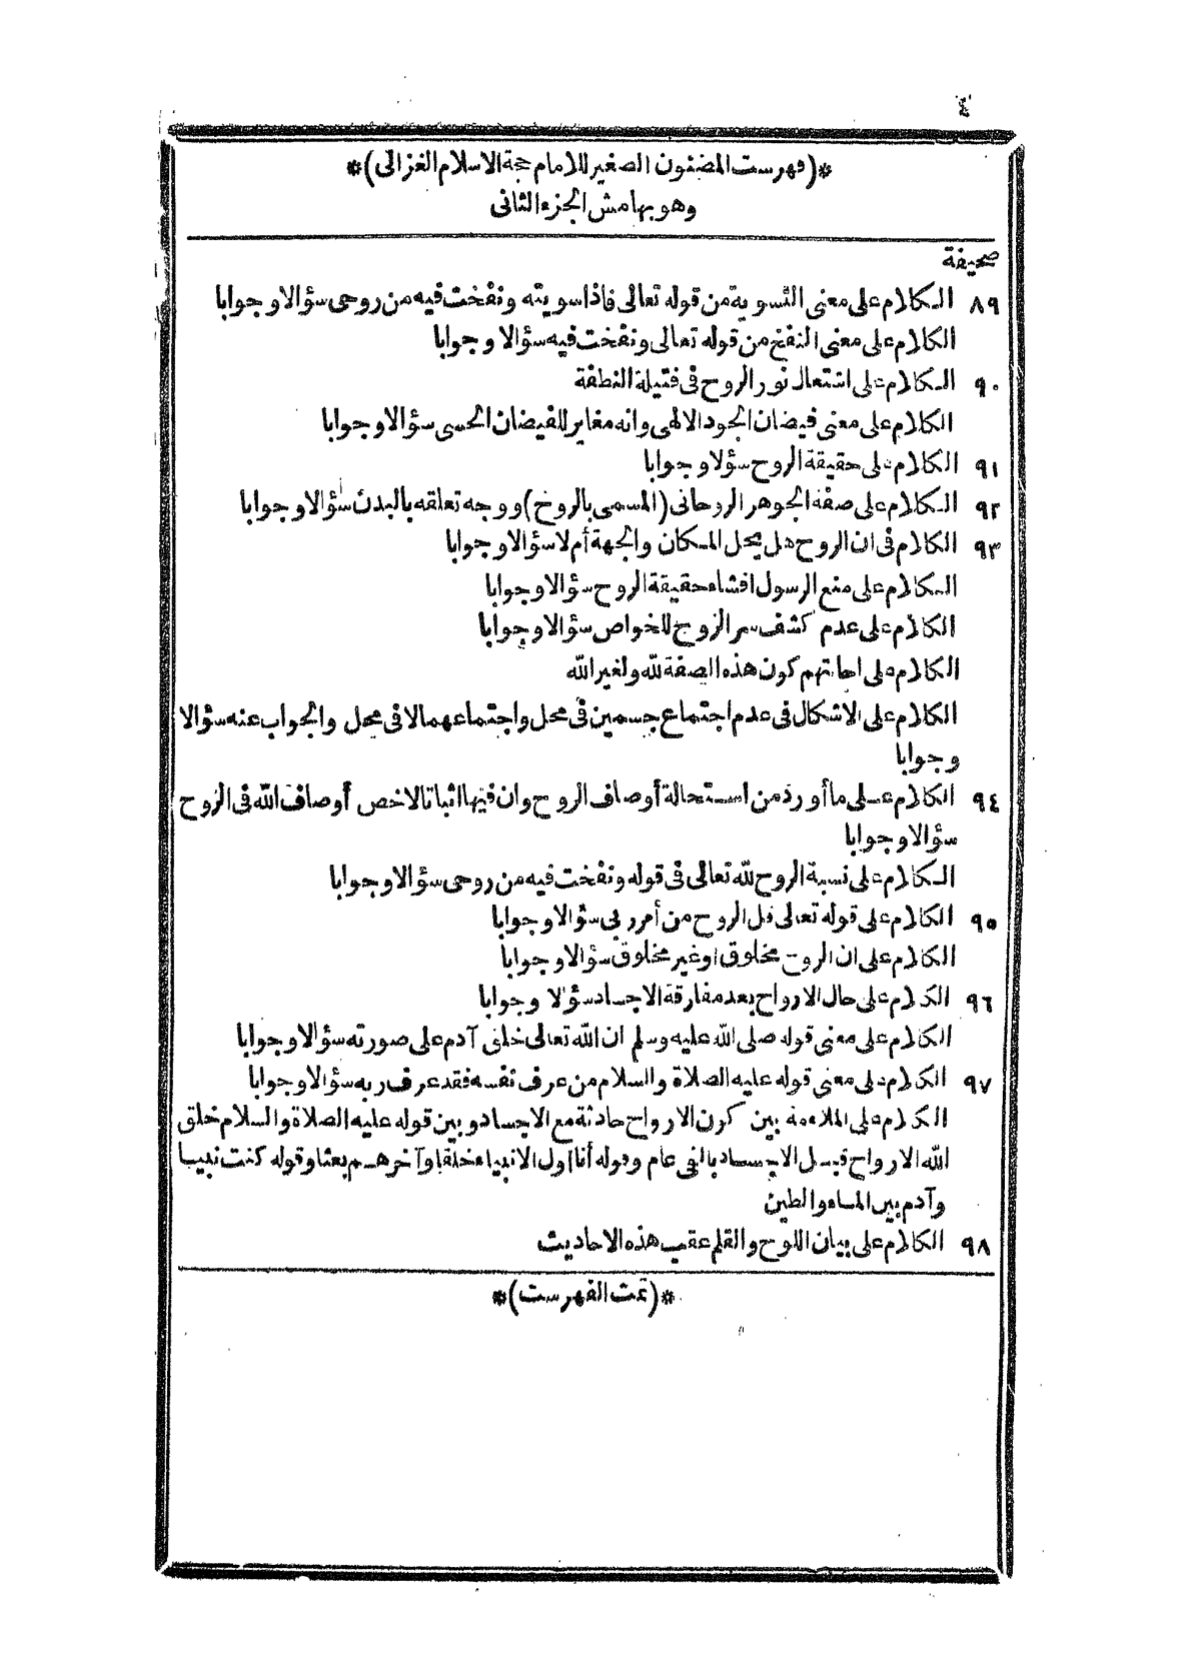 ٤
*(فهرست المضنون الصغير للامام حجة الاسلام الغزالى)*
وهو بهامش الجزء الثانى
صحيفة
٨٩ الكلام على معنى التسوية من قوله تعالى فاذا سويته ونفخت فيه من روحى سؤالا وجوابا
الكلام على معنى النفخ من قوله تعالى ونفخت فيه سؤالا وجوابا
٩٠ الكلام على اشتعال نور الروح فى فتيلة النطفة
الكلام على معنى فيضان الجود الالهى وانه مغاير للفيضان الحسى سؤالا وجوابا
٩١ الكلام على حقيقة الروح سؤلا وجوابا
٩٢ الكلام على صفة الجوهر الروحانى (المسمى بالروح) ووجه تعلقه بالبدن سؤالا وجوابا
٩٣ الكلام فى ان الروح هل يحل المكان والجهة أم لا سؤالا وجوابا
الكلام على منع الرسول افشاء حقيقة الروح سؤالا وجوابا
الكلام على عدم كشف سر الروح للخواص سؤالا وجوابا
الكلام على احالتهم كون هذه الصفة لله ولغير الله
الكلام على الاشكال فى عدم اجتماع جسمين فى محل واجتماعهما لا فى محل والجواب عنه سؤالا
وجوابا
٩٤ الكلام على ما أورد من استحالة أوصاف الروح وان فيها اثباتا لاخص أوصاف الله فى الروح
سؤالا وجوابا
الكلام على نسبة الروح لله تعالى فى قوله ونفخت فيه من روحى سؤالا وجوابا
٩٥ الكلام على قوله تعالى قل الروح من أمر ربى سؤالا وجوابا
الكلام على ان الروح مخلوق او غير مخلوق سؤالا وجوابا
٩٦ الكلام على حال الارواح بعد مفارقة الاجساد سؤلا وجوابا
الكلام على معنى قوله صلى الله عليه وسلم ان الله تعالى خلق آدم على صورته سؤالا وجوابا
٩٧ الكلام على معنى قوله عليه الصلاة والسلام من عرف نفسه فقد عرف ربه سؤالا وجوابا
الكلام على الملاءمة بين كون الارواح حادثة مع الاجساد وبين قوله عليه الصلاة والسلام خلق
الله الارواح قبل الاجساد بالفى عام وقوله أنا اول الانبياء خلقا وآخرهم بعثا وقوله كنت نبيا
وآدم بين الماء والطين
٩٨ الكلام على بيان اللوح والقلم عقب هذه الاحاديث
*(تمت الفهرست)*